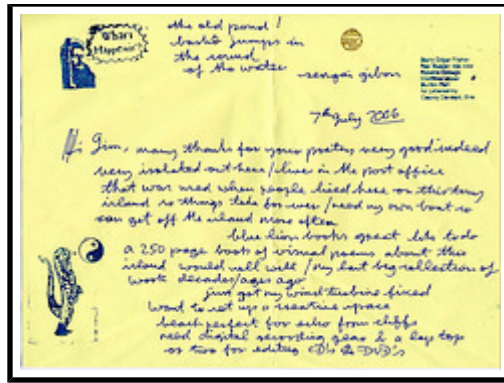 What's
Happenin?
the old pond!
bashō jumps in
the sound
of the water
sengai gibon
7th July 2006
Hi Jim, many thanks for your poetry very good indeed
very isolated out here / live in the post office
that was used when people lived here on this tiny
island so things take for ever / need my own boat so
can get off the island more often
blue lion books great lets to do
a 250 page book of visual poems about this
island would sell well / my last big collection of
work decades/ages ago
just got my wind turbine fixed
want to set up a creative space
beach perfect for echo from cliffs
need digital recording gear & a lap top
or two for editing CD's & DVD's